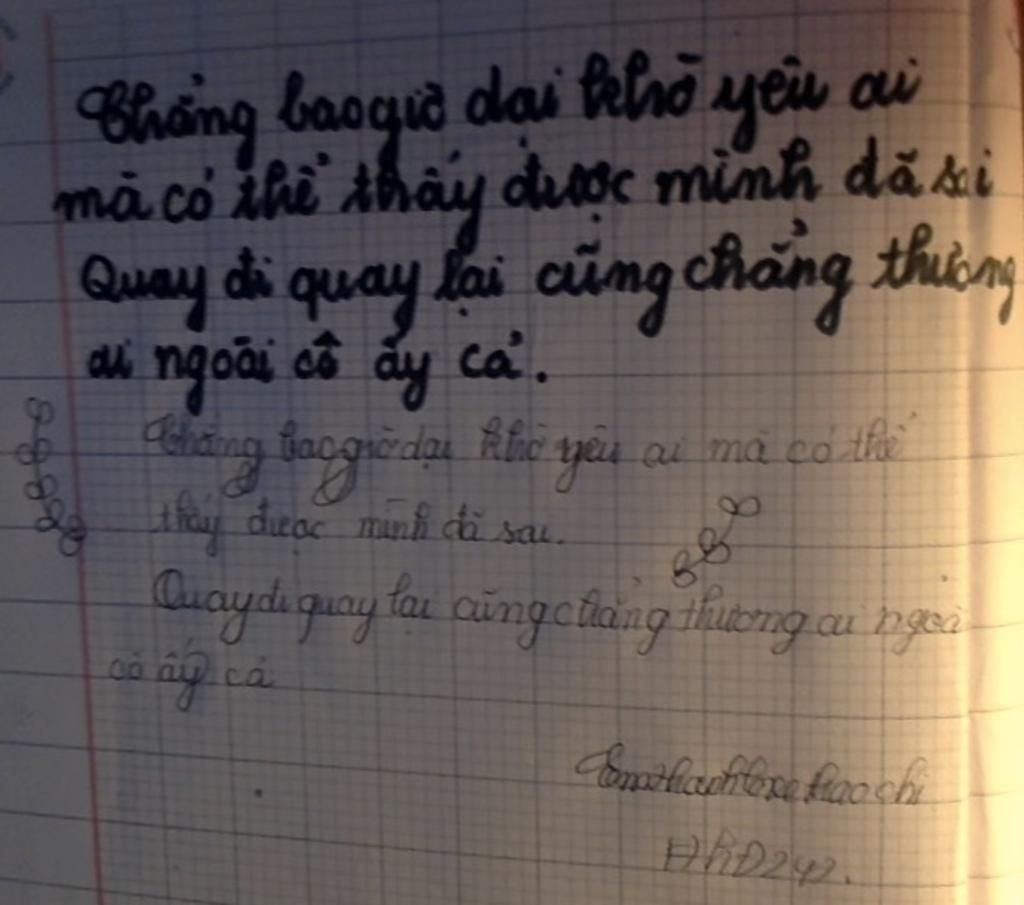 Chẳng bao giờ dại khờ yêu ai
mà có thể thấy được mình đã sai
Quay đi quay lại cũng chẳng thương
ai ngoài cô ấy cả.
Chẳng bao giờ dại khờ yêu ai mà có thể
thấy được mình đã sai.
Quay đi quay lại cũng chẳng thương ai ngoài
cô ấy cả